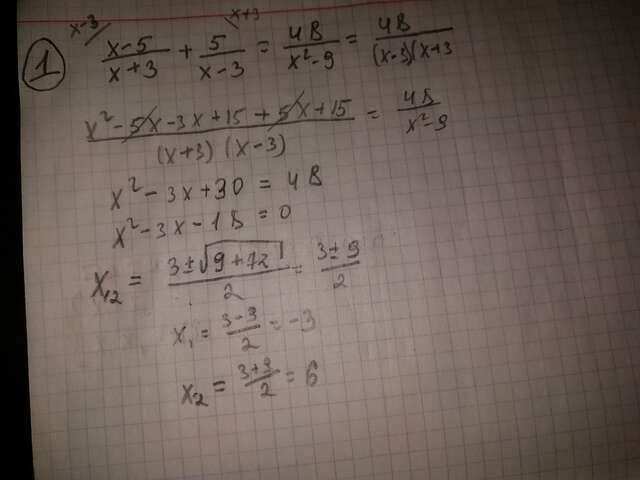 x-3 x+3
1 x-5/x+3 + 5/x-3 = 48/x²-9 = 48/(x-3)(x+3
x²-5x-3x+15+5x+15/(x+3)(x-3) = 48/x²-9
x²-3x+30=48
x²-3x-18=0
x₁₂ = 3±√9+72/2 = 3±9/2
x₁ = 3-9/2 = -3
x₂ = 3+9/2 = 6